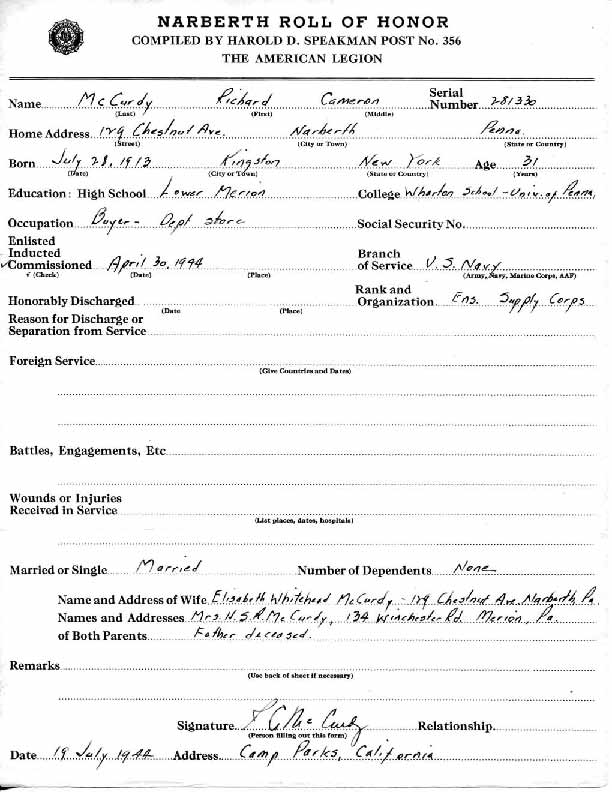 NARBERTH ROLL OF HONOR
COMPILED BY HAROLD D. SPEAKMAN POST No. 356
THE AMERICAN LEGION
Name McCurdy Richard Cameron Serial Number 281330
(Last) (First) (Middle)
Home Address 129 Chestnut Ave. Narberth Penna.
(Street) (City or Town) (State or Country)
Born July 28, 1913 Kingston New York Age 31
(Date) (City or Town) (State or Country) (Years)
Education: High School Lower Merion College Wharton School - Univ. of Penna.
Occupation Buyer - Dept store Social Security No.
Enlisted
Inducted Branch
✓Commissioned April 30, 1944 of Service U. S. Navy
√ (Check) (Date) (Place) (Army, Navy, Marine Corps, AAF)
Rank and
Honorably Discharged Organization Ens. Supply Corps
(Date (Place)
Reason for Discharge or
Separation from Service
Foreign Service
(Give Countries and Dates)
Battles, Engagements, Etc
Wounds or Injuries
Received in Service
(List places, dates, hospitals)
Married or Single Married Number of Dependents None
Name and Address of Wife Elizabeth Whitehead McCurdy - 129 Chestnut Ave Narberth, Pa.
Names and Addresses Mrs. H.S.R. McCurdy, 134 Winchester Rd. Merion, Pa.
of Both Parents Father deceased.
Remarks
(Use back of sheet if necessary)
Signature R C McCurdy Relationship
(Person filling out this form)
Date 19 July 1944 Address Camp Parks, California